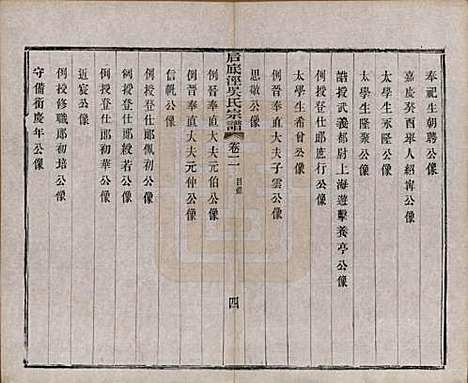 奉祀生朝聘公像
嘉慶癸酉舉人紹甯公像
太學生承隆公像
太學生隆聚公像
誥授武義都尉上海遊擊養亭公像
例授登仕郎應行公像
太學生希曾公像
例晉奉直大夫子雲公像
思敬公像
后底涇吳氏宗譜 卷二 目錄 四
例晉奉直大夫元伯公像
例晉奉直大夫元仲公像
信帆公像
例授登仕郎佩初公像
例授登仕郎毅若公像
例授登仕郎初華公像
例授修職郎初培公像
近宸公像
守備銜慶年公像